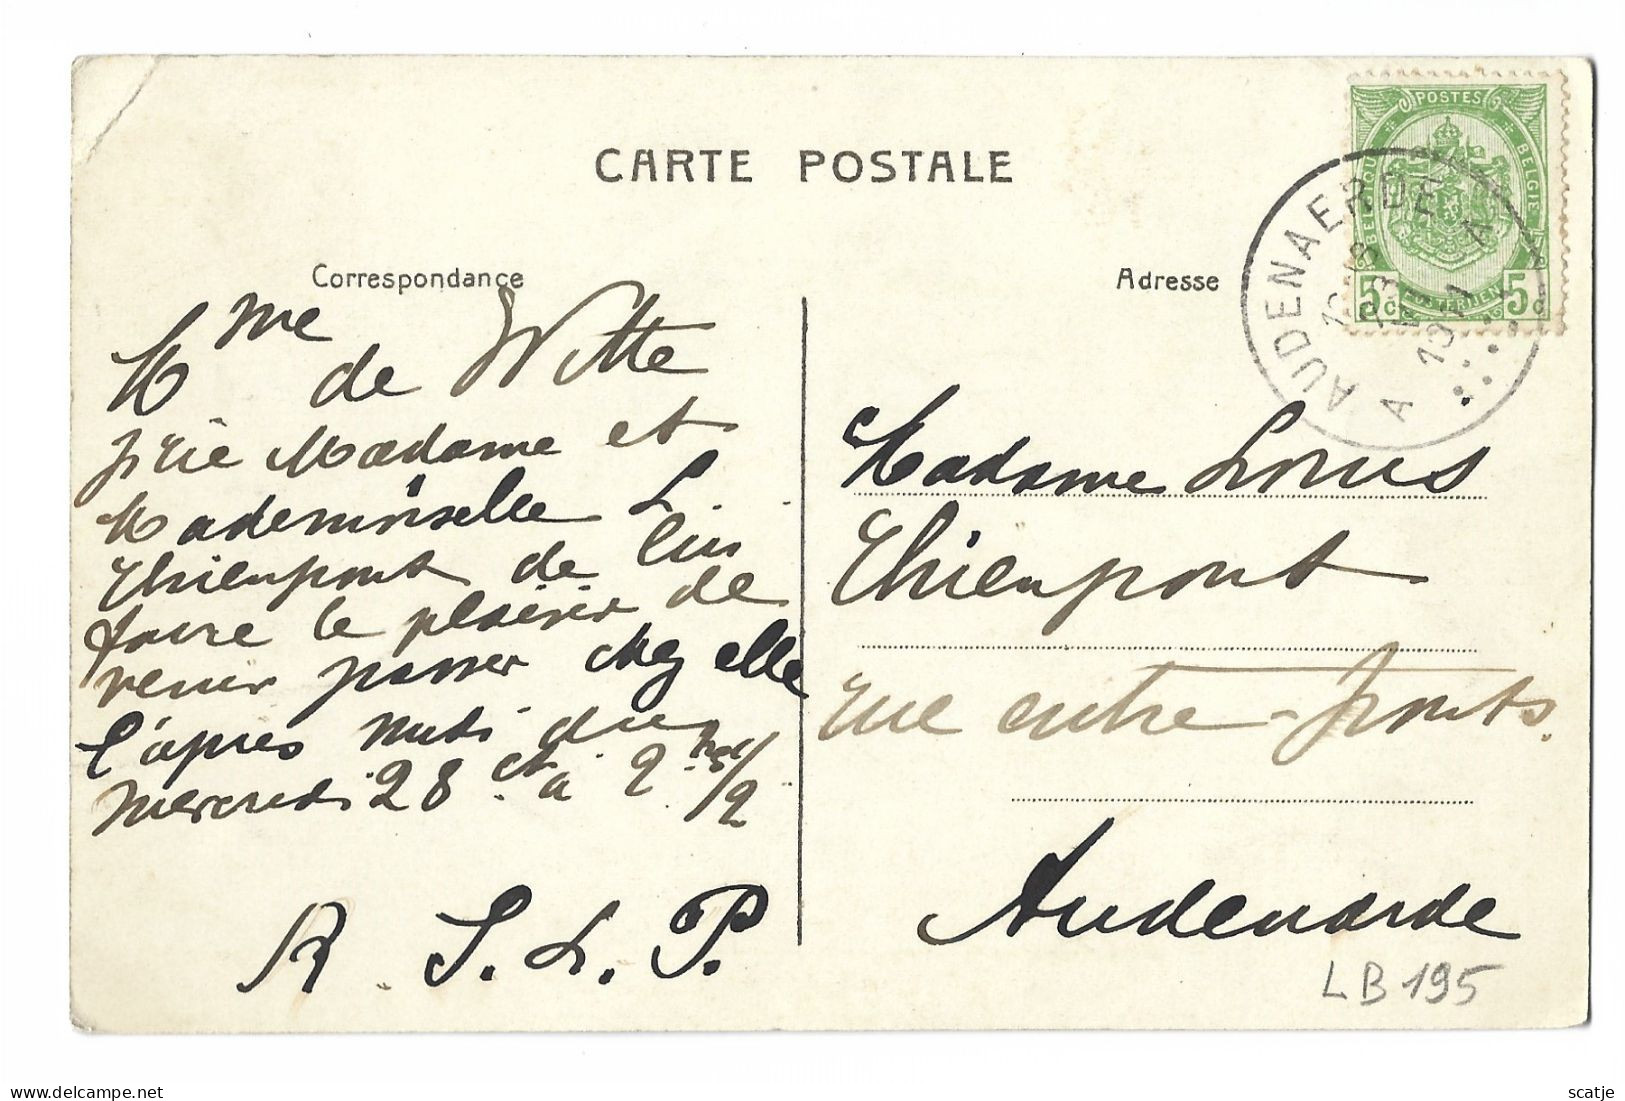 CARTE POSTALE
Correspondance
Adresse
POSTES
BELGIE
POSTERIJEN
5c 5c
AUDENAERDE
A
Mme de Witte
prie Madame et
Mademoiselle L.
Thienpont de lui
faire le plaisir de
venir passer chez elle
l'après midi du
Mercredi 28 ct à 2 hres 1/2
R. S. L. P.
Madame Louis
Thienpont
rue entre-ponts.
Audenarde
LB 195
scatje